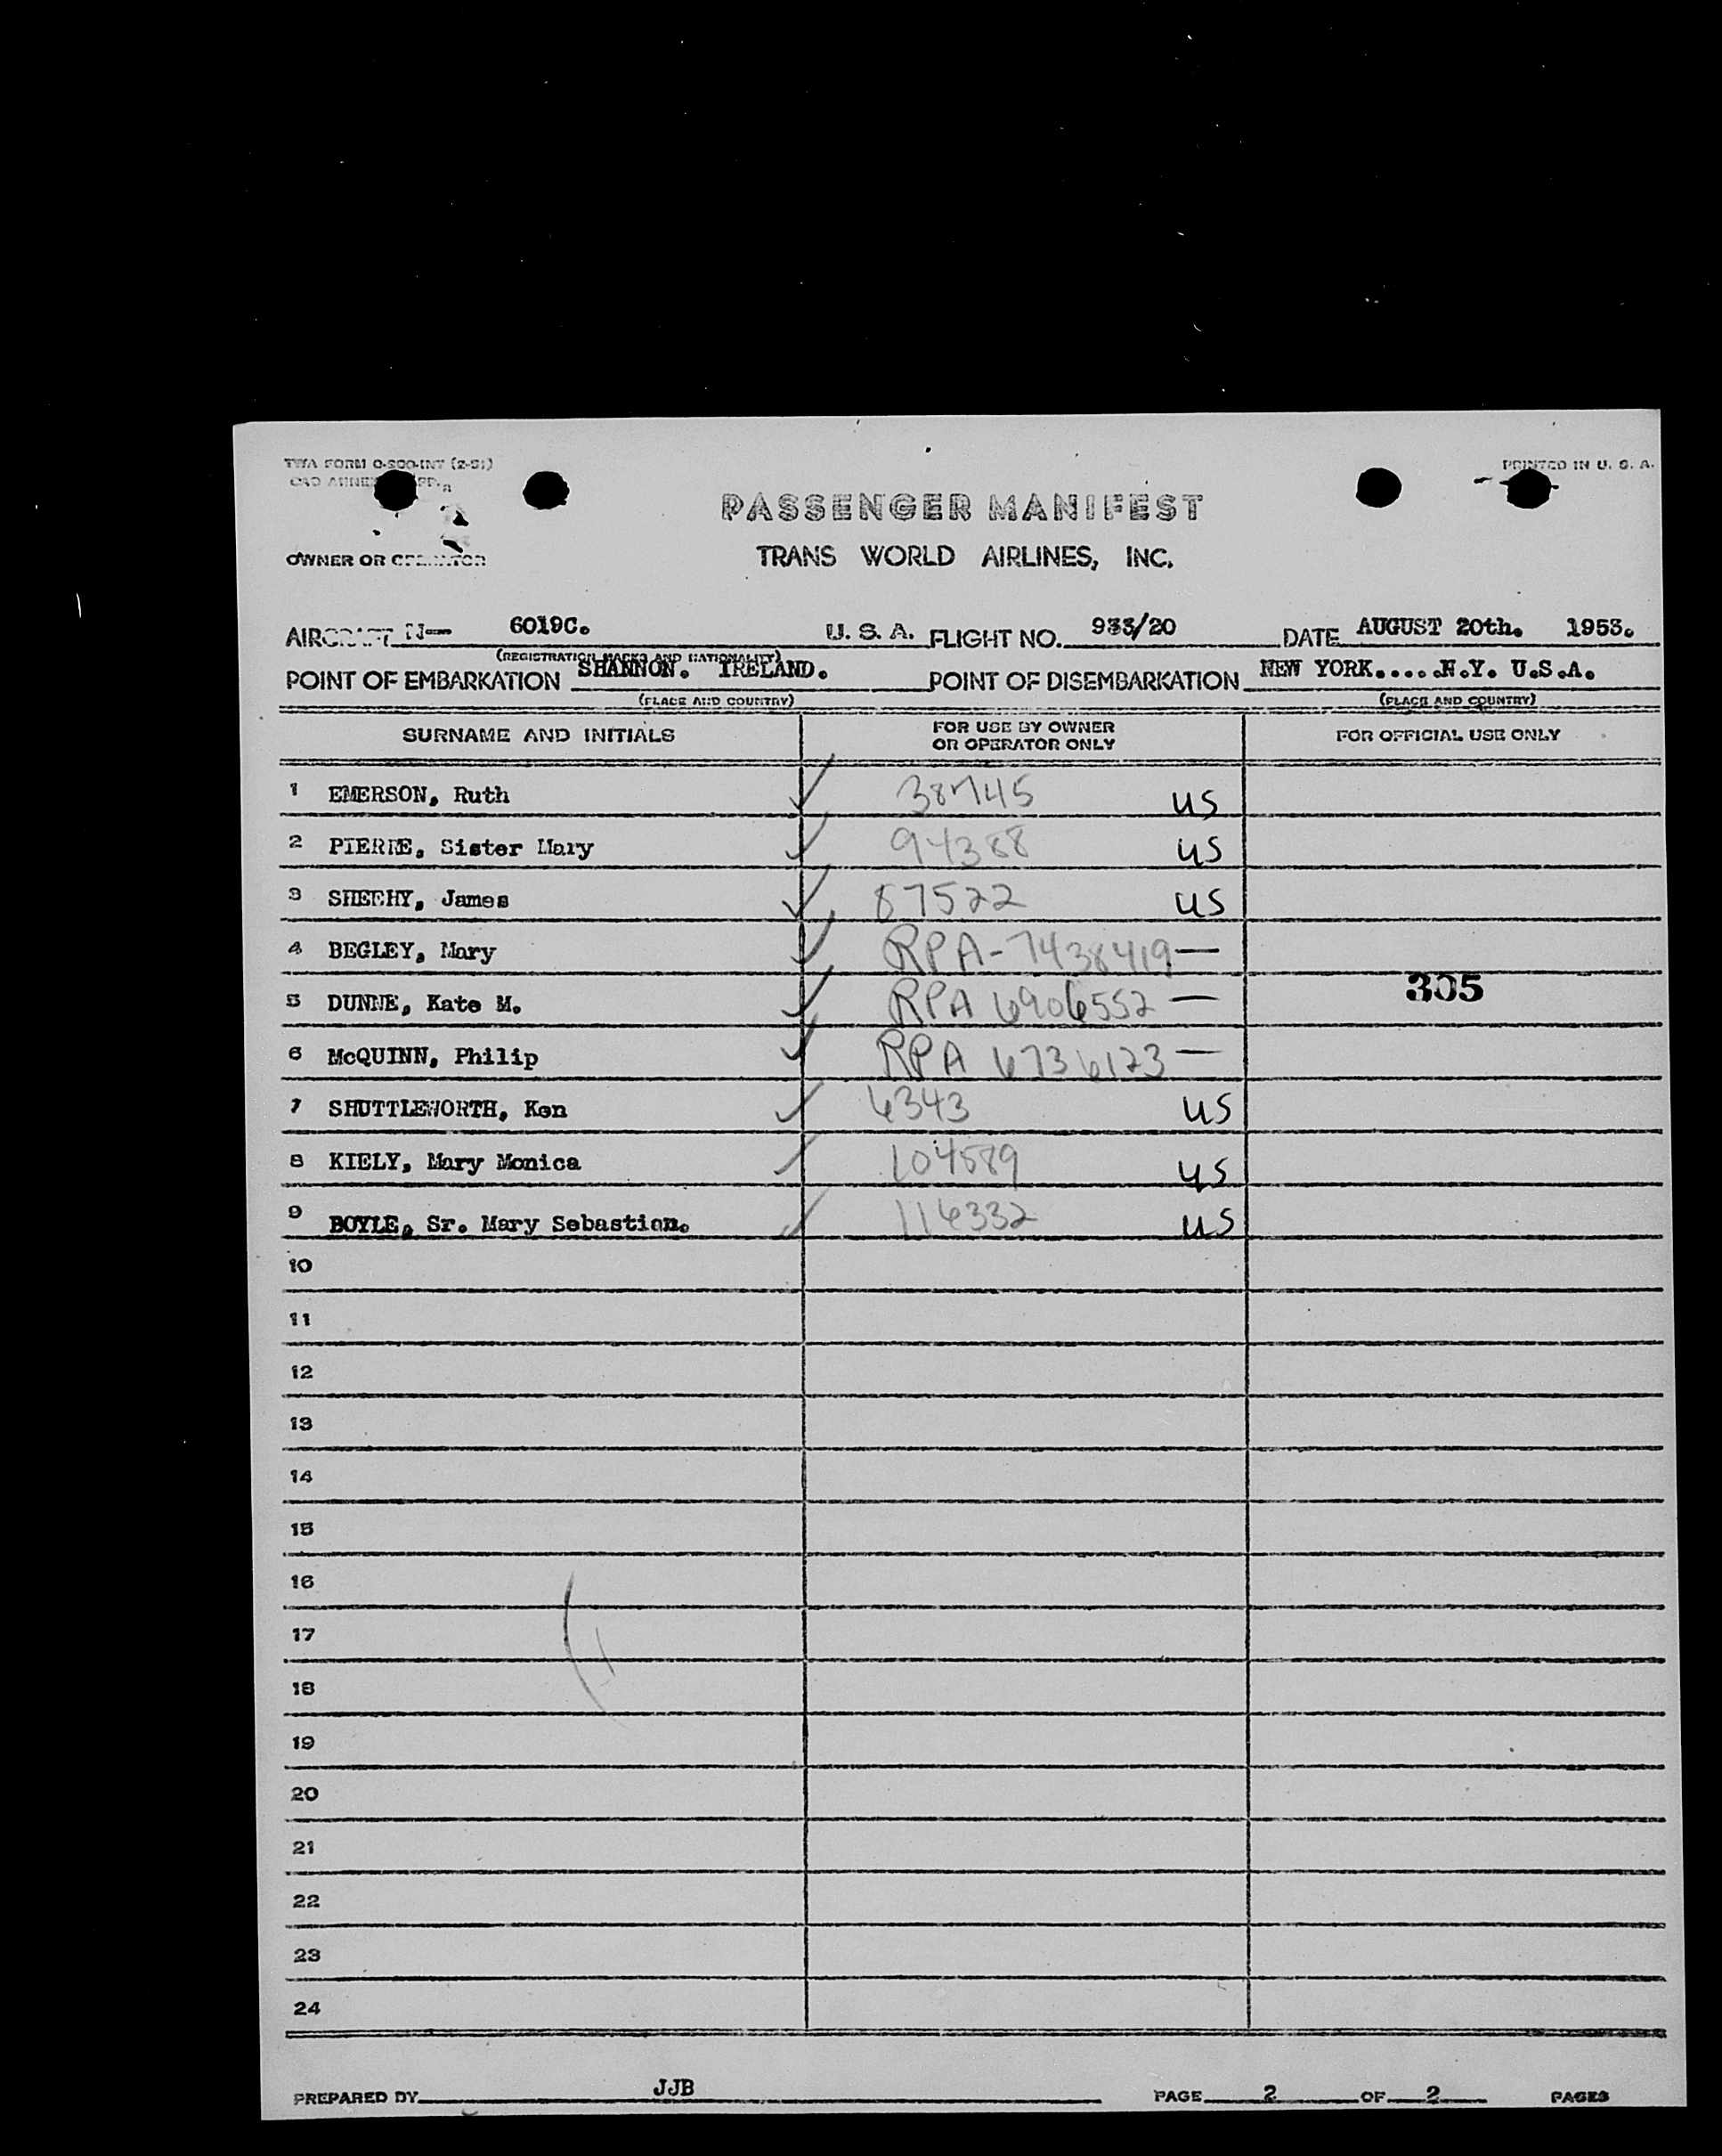 TWA FORM O-200-INT (2-51)
PRINTED IN U. S. A.
PASSENGER MANIFEST
OWNER OR OPERATOR
TRANS WORLD AIRLINES, INC.
AIRCRAFT N— 6019C. U. S. A. FLIGHT NO. 933/20 DATE AUGUST 20th. 1953.
(REGISTRATION MARKS AND NATIONALITY)
POINT OF EMBARKATION SHANNON. IRELAND. POINT OF DISEMBARKATION NEW YORK.....N.Y. U.S.A.
(PLACE AND COUNTRY) (PLACE AND COUNTRY)
SURNAME AND INITIALS FOR USE BY OWNER OR OPERATOR ONLY FOR OFFICIAL USE ONLY
1 EMERSON, Ruth 38745 US
2 PIERRE, Sister Mary 94388 US
3 SHEEHY, James 87522 US
4 BEGLEY, Mary RPA-7438419 —
5 DUNNE, Kate M. RPA 6906552 — 305
6 McQUINN, Philip RPA 6736123 —
7 SHUTTLEWORTH, Ken 6343 US
8 KIELY, Mary Monica 104589 US
9 BOYLE, Sr. Mary Sebastian. 116332 US
10
11
12
13
14
15
16
17
18
19
20
21
22
23
24
PREPARED BY JJB PAGE 2 OF 2 PAGES